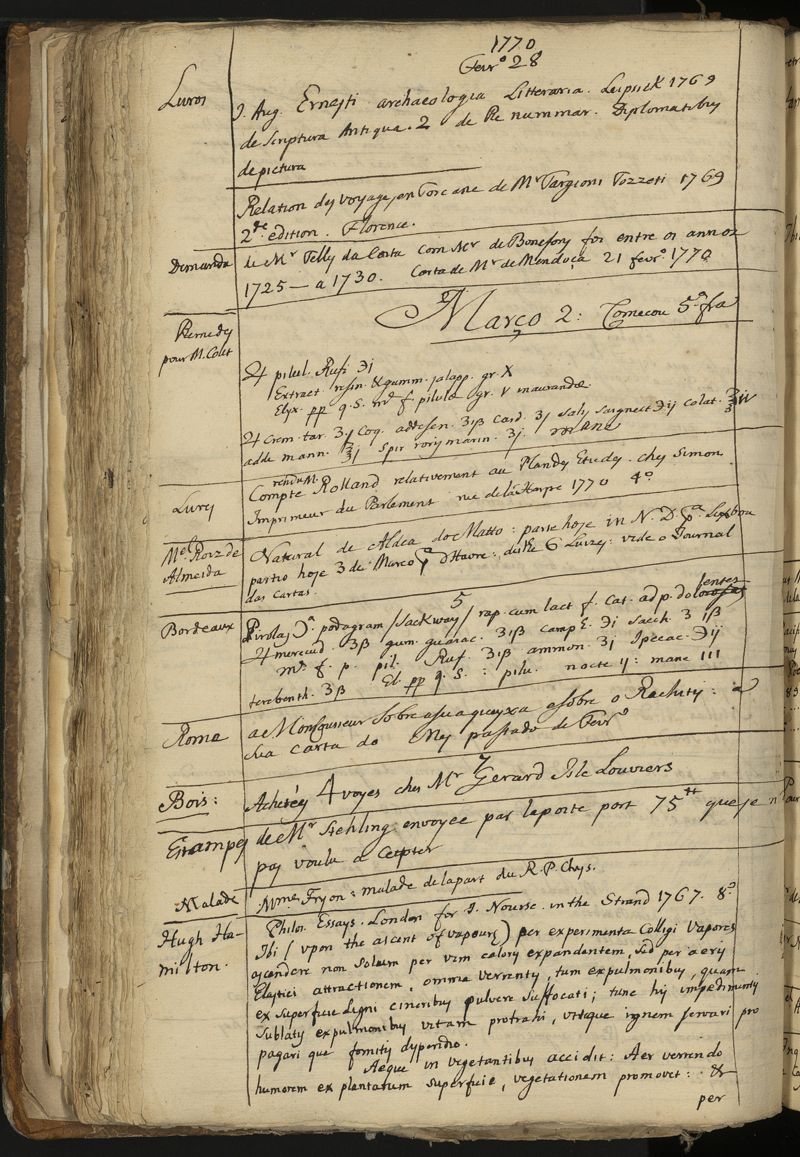 1770
Fevr.º 28
Livros
J. Aug. Ernesti archaeologia Litteraria. Leipsick 1769
de Scriptura Antiqua. 2 de Re nummar. Diplomatibus
de pictura
Relation des voyages en Toscane de Mr Targioni Tozzeti 1769
2.de edition. Florence.
Demanda
de Mr Telly da Corta com Mr de Bonefoy foi entre os annos
1725 — a 1730. Carta de Mr de Mendoça 21 fevrº 1770
Março 2: Comecou 5.ª fra
Remedes
pour M. Colet
♃ pilul. Rufi ℈j
Extract resin. & gumm. jalapp. gr. X
Elix. pp q. S. mr f. pilulæ gr. V inaurandæ
♃ Crem. tar. ʒj coq. ad desen. ʒiß card. ʒj salis Seignect ℈ij colat. ℥iv
adde mann. ℥j Spir rorismarin. ʒj mane
Livres
rendu M.
Compte Rolland relativement au Plan des Etudes. ches Simon
Imprimeur du Parlement rue de la Harpe 1770 4º
Mel Roiz de
Almeida
Natural de Aldea do Matto: parte hoje in N. D. pª Lisboa
partio hoje 3 de Marco pª d'Havre: deilhe 6 Luizes: vide o Journal
das Cartas.
Bordeaux
Pirolas Dª. podagram / Sackway / rap. cum lact f. Cat. ad p. dolorosas
5
lentes
♃ mercuid. ʒß gum. guaiac. ʒiß camp E. ℈i sacch. ʒ iß
mr. f. p. pil. Ruf. ʒiß ammon. ʒj Ipecac. ℈ij
terebenth. ʒß El. pp q. S. : pilu. nocte ij: mane III
Roma
a Monsr sobre a sua queyxa e sobre o Rachitis: a
sua carta do Mes passado de Fevrº
Bois:
Achetés 4 voyes ches Mr Gerard Isle Louviers
7
Estampes
de Mr Stehling envoyée par la poste port 75tt que je n
pas voulu accepter
Malade
Mme Fryon: malade de la part du R. P. Chays.
Hugh Ha-
milton.
Philos. Essays. London for J. Nourse. in the Strand 1767. 8.º
Ibi (upon the ascent of vapours) per experimenta Colligi Vapores
ascendere non Solum per vim caloris expandentem, Sed per aeris
Elastici attractionem, omnia verrentis, tum expulmonibus, quam
ex superficie Ligni cineribus pulvere Suffocati; tunc his impedimentis
Sublatis expulmonibus vitam protrahi, utique ignem servari pro
pagari que fomitis dispendio.
Aeque in vegetantibus accidit: Aer verrendo
humorem ex plantarum Superficie, vegetationem promovet: &
per